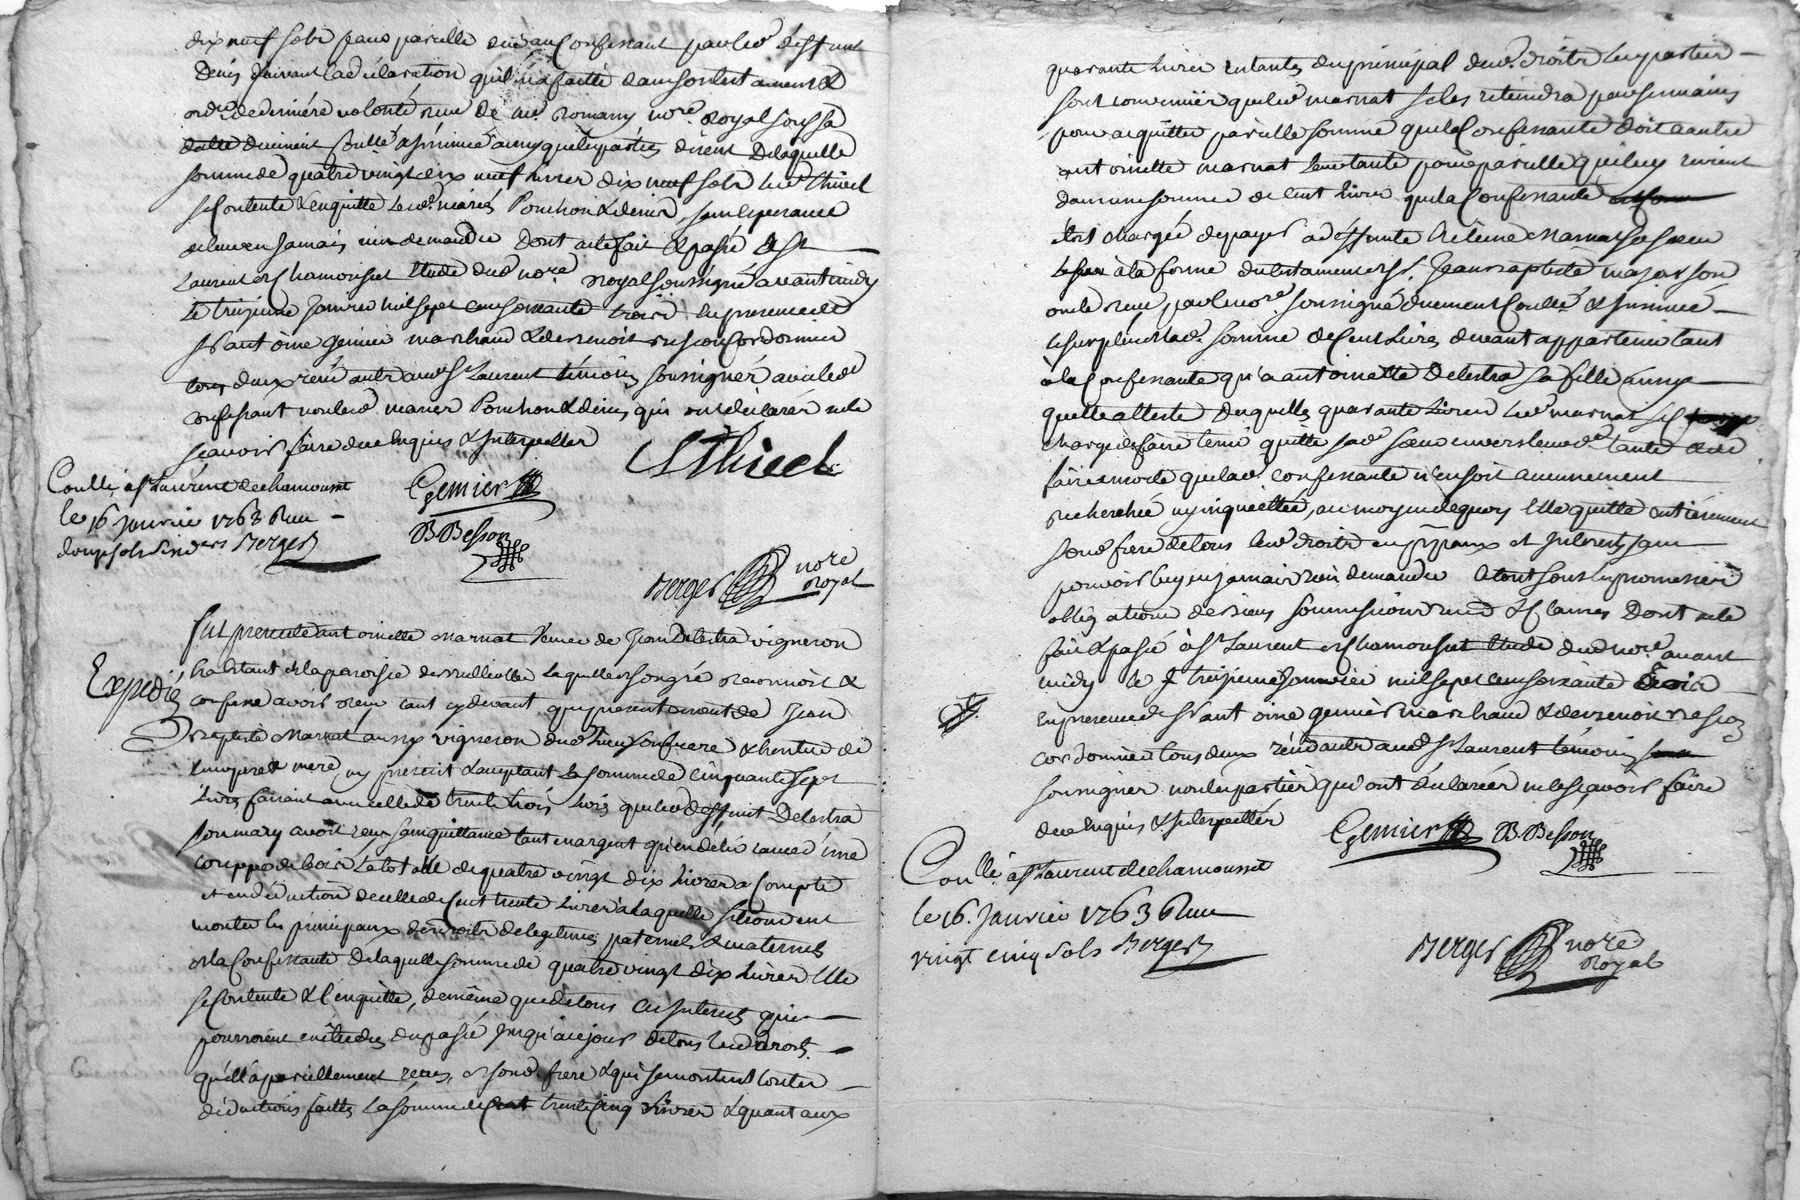 dix neuf sols pour pareille due au Confessant par led deffunt
Denis suivant la declaration qu'il en a faitte dans son testament &
ord.re de derniére volonté reçu de me. Romany nore. Royal sous sa
datte duement Conllé & insinué ainsy que les parties disent De laquelle
somme de quatre vingt dix neuf livres dix neuf sols led Thivel
se Contente & en quitte lesd. mariés Ponchon & denis, sans esperance
de leur en jamais rien demander Dont acte fait & passé à St
Laurent de Chamousset Etude dud nore. Royal soussigné avant midy
Le treizieme Janvier mil sept cent soixante trois, en presence de
sr antoine gemier marchand & de benoit besson Cordonnier
tous deux résidants aud St Laurent témoins soussignés avec led
confessant non lesd mariés Ponchon & denis qui ont déclarés ne le
sçavoir faire de ce Enquis & Interpellés
CThivel
Conllé à St Laurent de chamousset
le 16. Janvier 1763 Reçu
douze sols six ders Berger
Gemier
B Besson
Berger nore Royal
Fut presente antoinette Marnat veuve de Jean Delestra vigneron
habitant de la paroisse de Brullioles Laquelle de son gré reconnoit &
confesse avoir reçu tant cy devant que presentement de Jean
Expedié
Baptiste Marnat aussy vigneron dud lieu son frere & heritier de
leurs pere & mere, cy present & acceptant La somme de Cinquante sept
livres faisant avec celle de trente trois livres que led deffunt Delestra
son mary avoit reçu sans quittance tant en argent qu'en délivrance d'une
couppe de bois Le total de quatre vingt dix livres a Compte
et en déduction de celle de Cent trente livres à laquelle se trouvent
monter les principaux des droits de legitimes paternels & maternels
de la Confessante de laquelle somme de quatre vingt dix Livres Elle
se Contente & l'en quitte, de même que de tous les Interets qui
pourroient être dus du passé jusqu'à ce jour de tous lesd droits
qu'elle a pareillement reçus de sond. frere & qui se montent toutes
déductions faittes La somme de Cent trente Cinq Livres & quant aux
quarante Livres restantes du principal desd. droits Les parties
sont convenües que led marnat se les retiendra par ses mains
pour acquitter pareille somme que la Confessante doit à autre
antoinette marnat leur tante pour pareille qui luy revient
dans une somme de Cent livres que la Confessante
étoit chargée de payer à deffunte heleine Marnat sa sœur
à la forme du testament de sr. Jean baptiste major son
oncle reçu par le nore. soussigné duement Conllé & Insinué
le surplus de lad. somme de Cent Livres devant appartenir tant
à la Confessante qu'a antoinette Delestra sa fille ainsy
quelle atteste desquelles quarante Livres led marnat se
charge de faire tenir quitte sad sœur envers leurd tante & de
faire en sorte que lad. confessante n'en soit aucunement
recherchée ny inquiettée, au moyen de quoy Elle quitte entiérement
sond frere de tous lesd droits en ppaux et Interets sans
pouvoir luy en jamais rien demander & tout sous les promesses
obligations de biens soumissions renons & Clauses Dont acte
fait & passé à St Laurent de Chamousset Etude dud nore. avant
midy le treizieme Janvier mil sept cent soixante trois
En presence de Sr antoine gemier marchand & de benoit Besson
cordonnier tous deux résidants aud St Laurent témoins
soussignés non les parties qui ont déclarées ne le sçavoir faire
de ce Enquis & Interpellés
Gemier B Besson
Conllé à St Laurent de chamousset
le 16. Janvier 1763 Reçu
vingt cinq sols Berger
Berger nore Royal